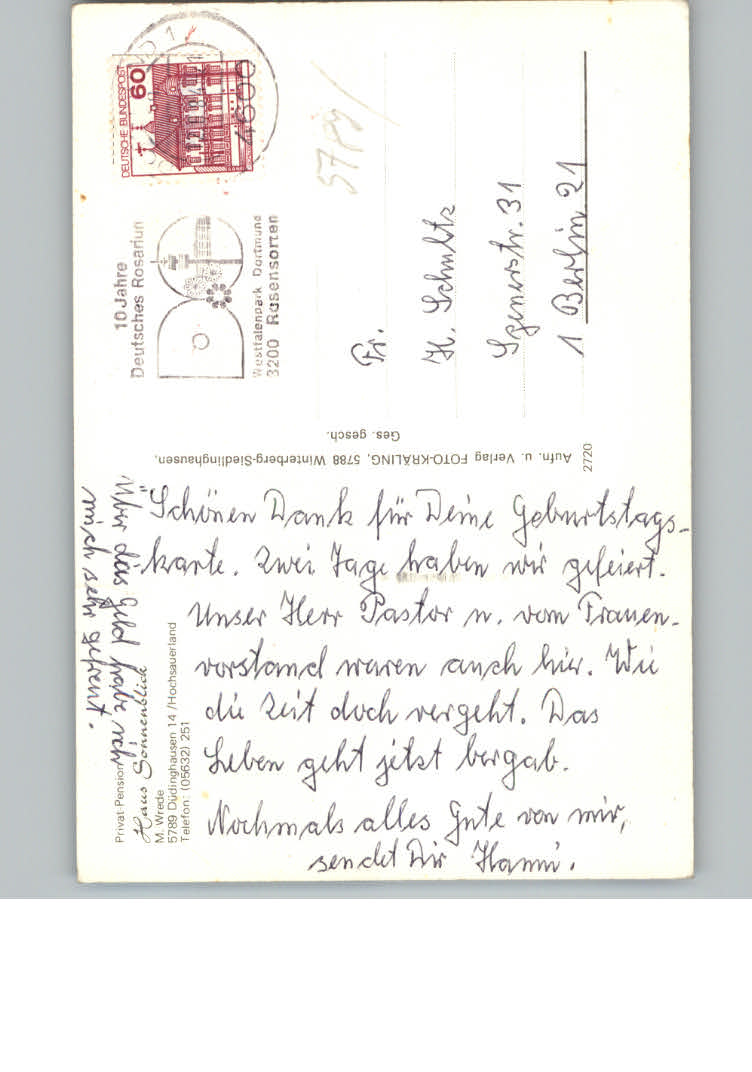 Schönen Dank für Deine Geburtstags-
karte. Zwei Tage haben wir gefeiert.
Unser Herr Pastor u. vom Frauen-
vorstand waren auch hier. Wie
die Zeit doch vergeht. Das
Leben geht jetzt bergab.
Nochmals alles Gute von mir,
sendet Dir Hanni.
Über das Geld habe ich
mich sehr gefreut.
Privat-Pension
Haus Sonnenblick
M. Wrede
5789 Düdinghausen 14/Hochsauerland
Telefon: (05632) 251
Aufn. u. Verlag FOTO-KRÄLING, 5788 Winterberg-Siedlinghausen,
Ges. gesch.
2720
10 Jahre
Deutsches Rosarium
Westfalenpark Dortmund
3200 Rosensorten
DEUTSCHE BUNDESPOST
60
4600
5789/
Fr.
H. Schultz
31
1 Berlin 21